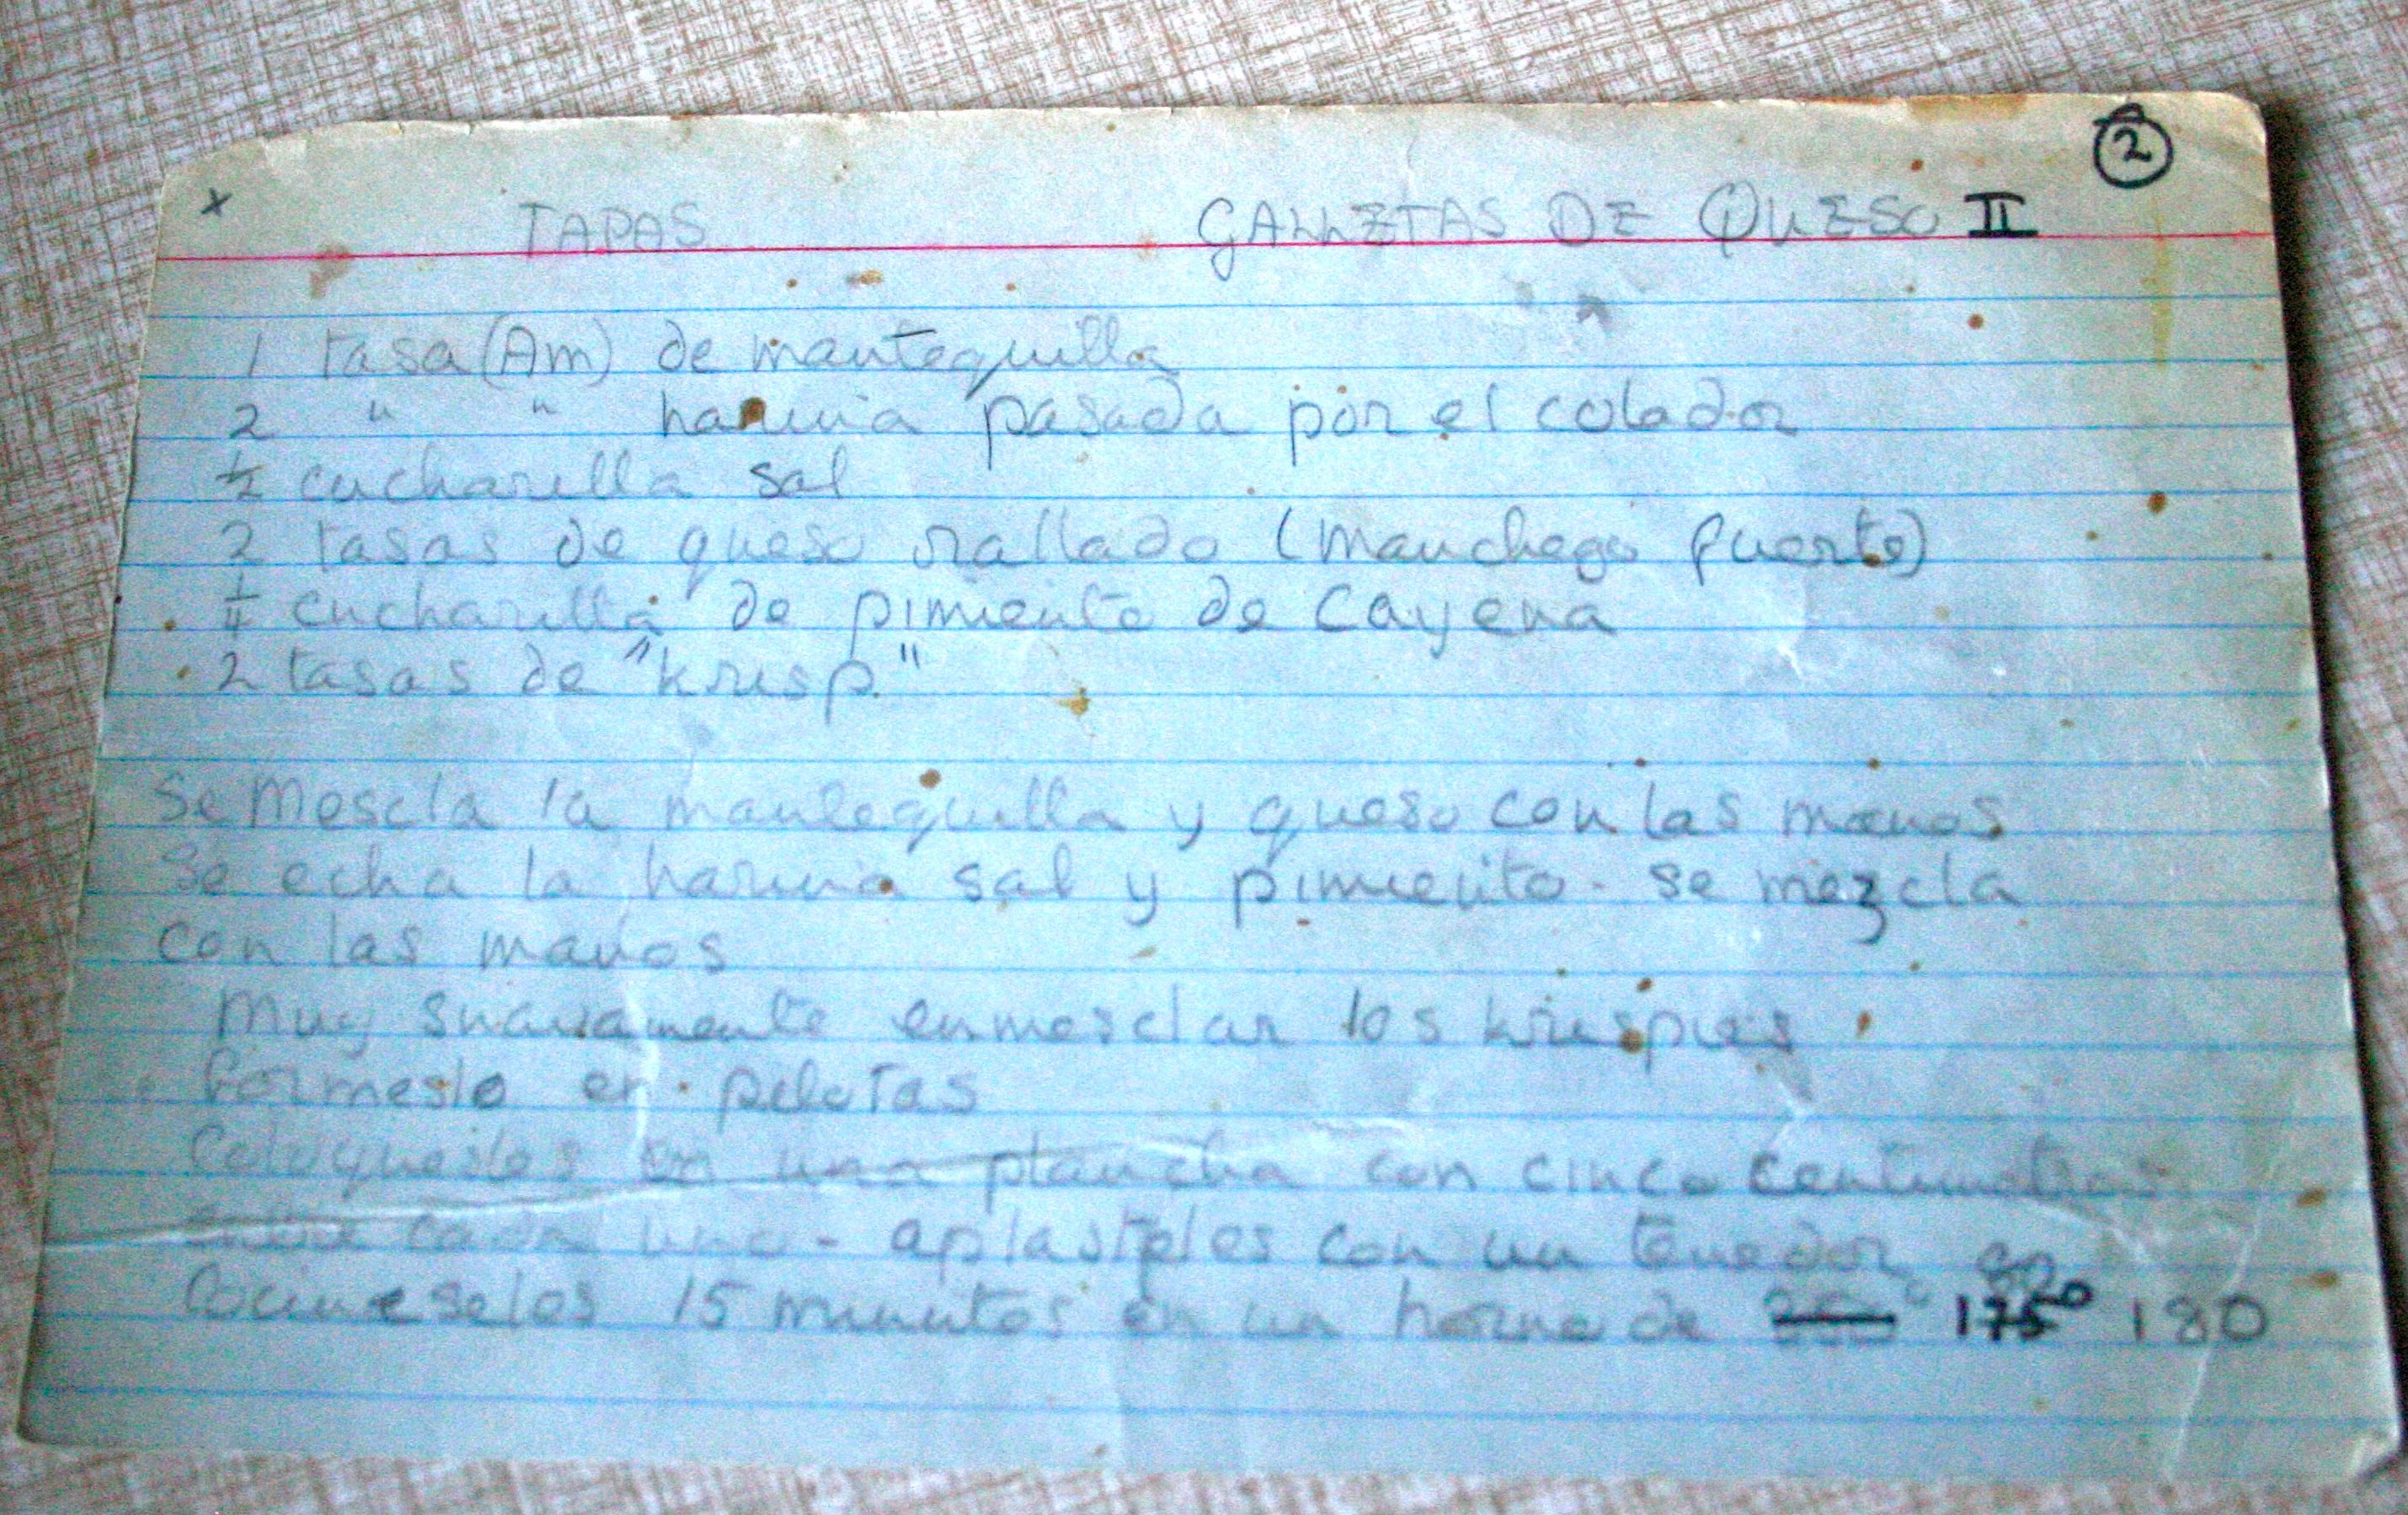 2
x TAPAS GALLETAS DE QUESO II
1 tasa (Am) de mantequilla
2 " " harina pasada por el colador
1/2 cucharilla sal
2 tasas de queso rallado (manchego fuerte)
1/4 cucharilla de pimiento de Cayena
2 tasas de "krisp"
Se mescla la mantequilla y queso con las manos
Se echa la harina sal y pimiento - se mezcla
con las manos
muy suavamente enmesclar los krispies
formeslo en pelotas
Coloqueslos en una plancha con cinco centimetros
entre cada uno - aplastelos con un tenedor
Cocineselos 15 minutos en un horno de 175° 180